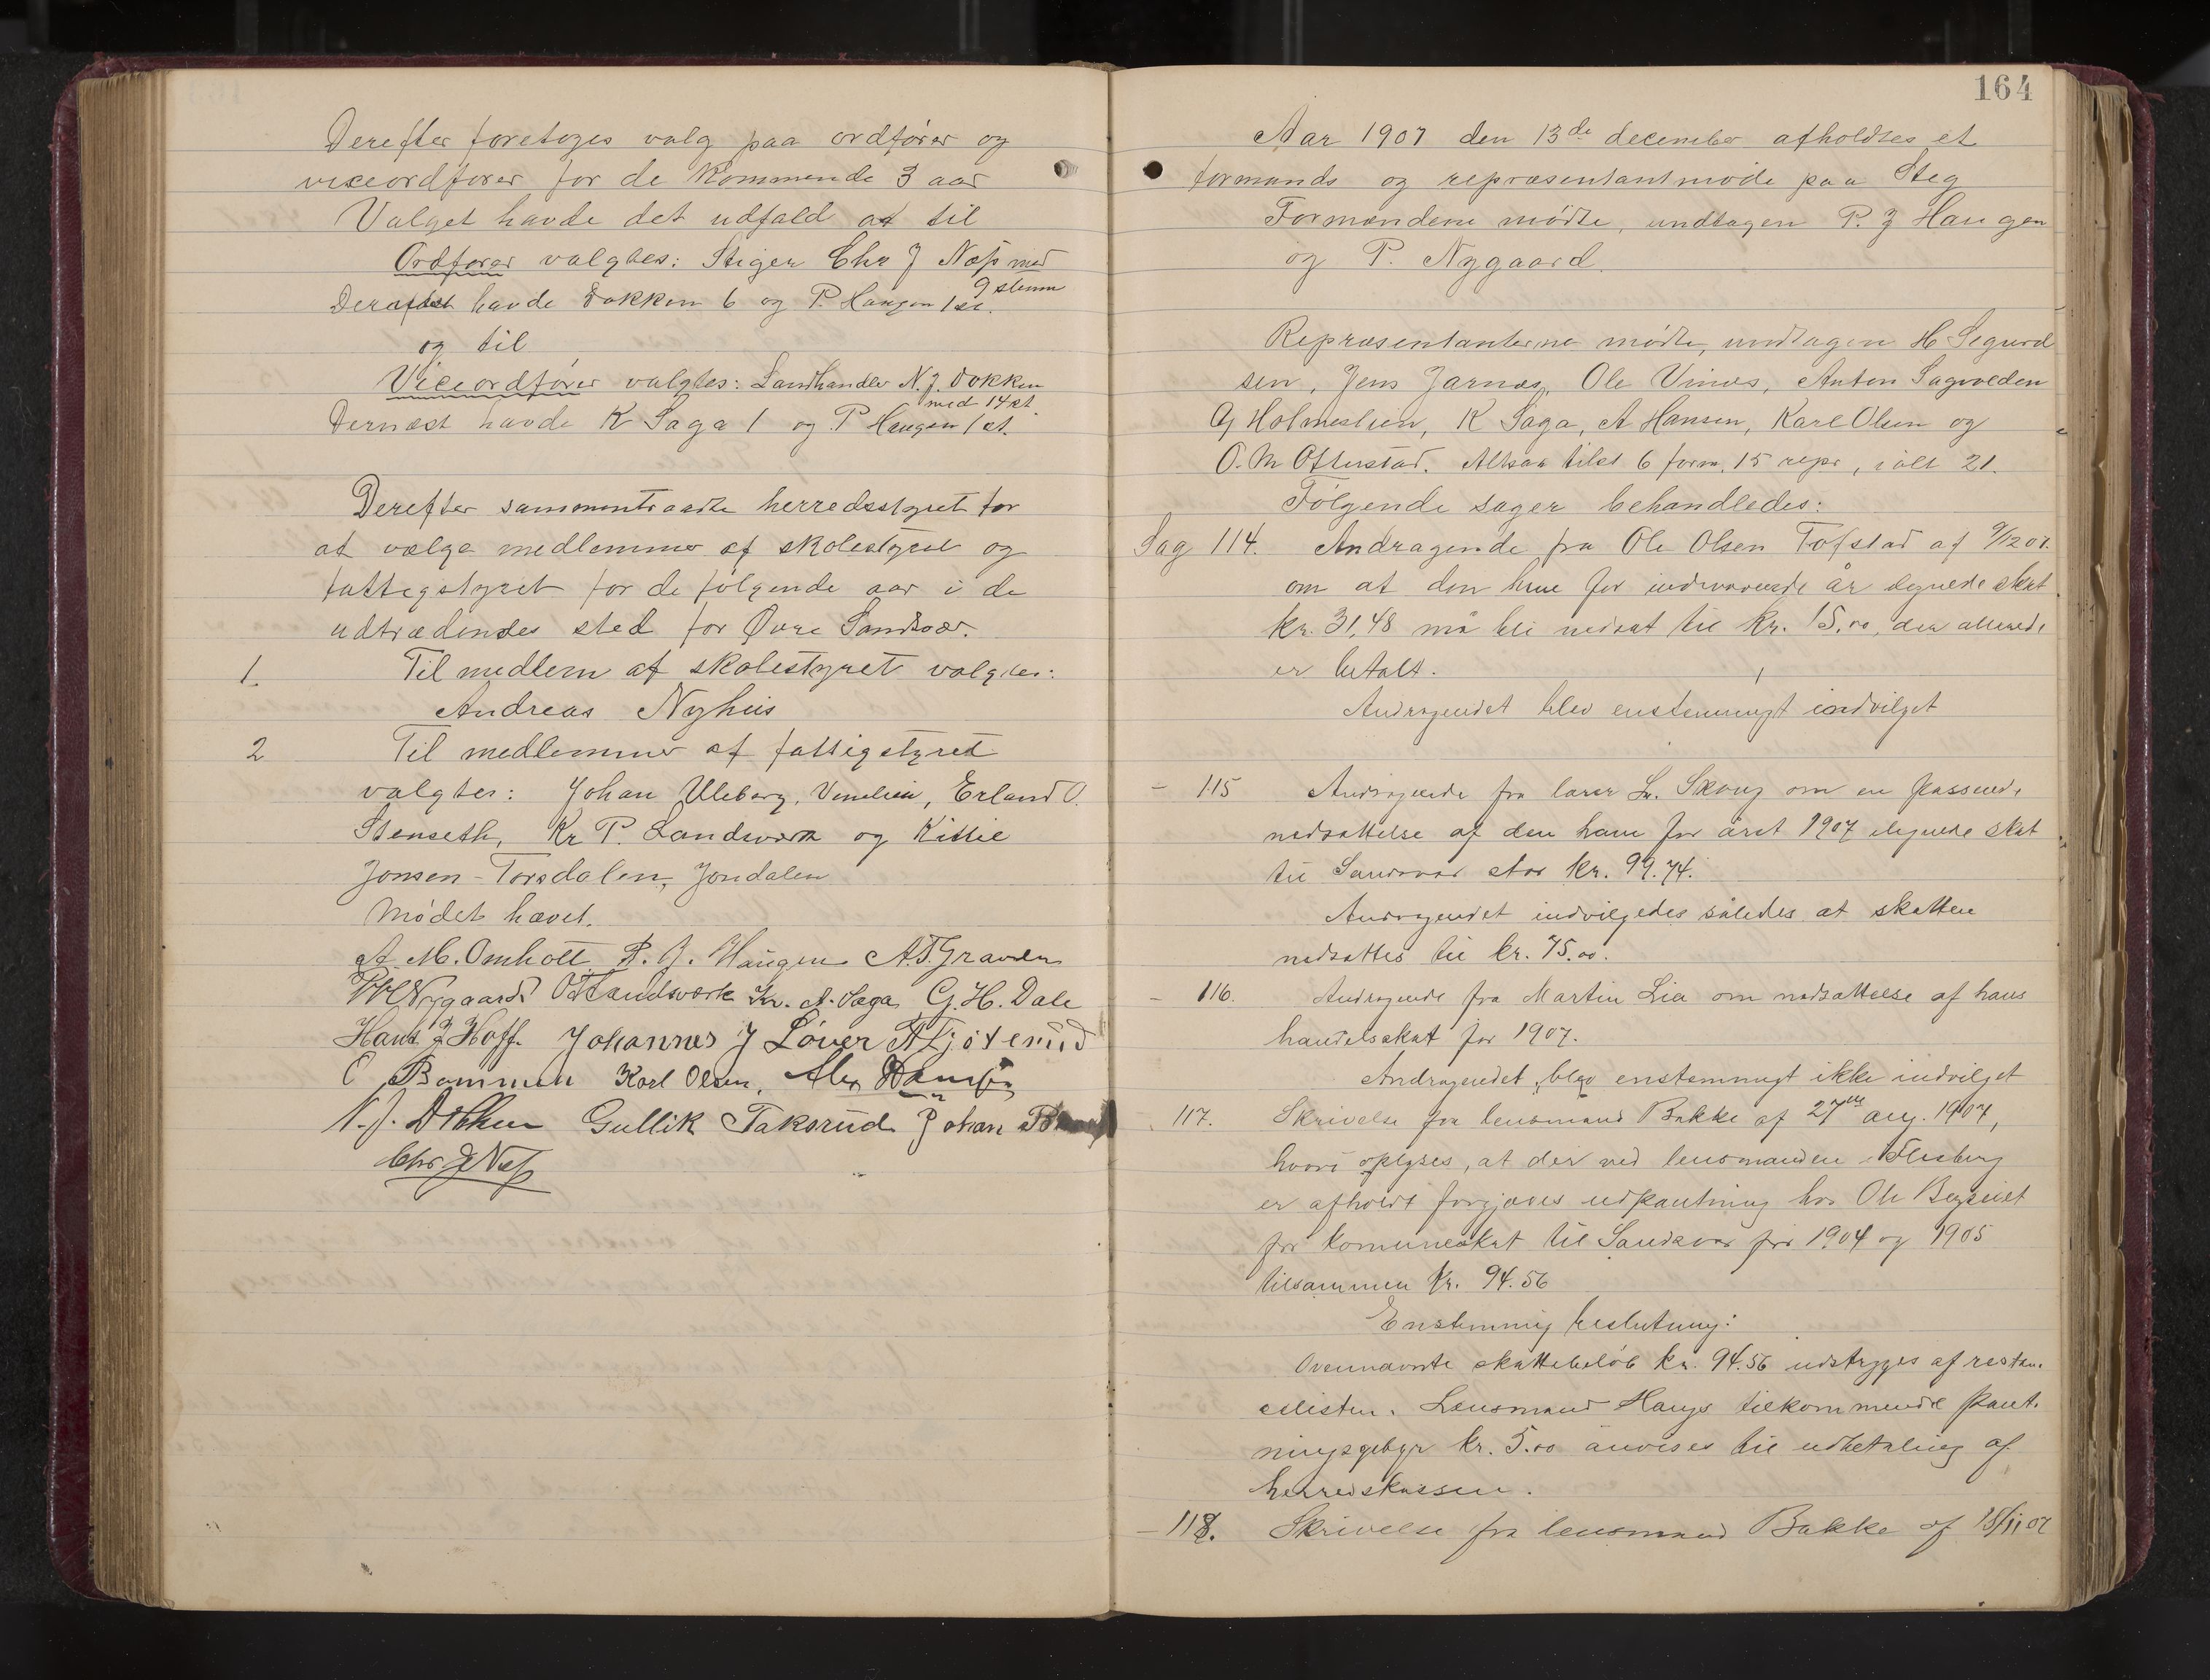 Derefter foretoges valg paa ordfører og
viceordfører for de kommende 3 aar
Valget havde det udfald at til
Ordfører valgtes: Stiger Chr J Næss med
9 stemm
havde Dokken 6 og P. Haugen 1 st.
og til
Viceordfører valgtes: Landhandler N. J. Dokken
med 14 st.
Dernæst havde K Saga 1 og P Haugen 1 st.
Derefter sammentraadte herredsstyret for
at vælge medlemmer af skolestyret og
fattigstyret for de følgende aar i de
udtrædendes sted for Øvre Sandsvær.
1. Til medlem af skolestyret valgtes:
Andreas Nyhus
2 Til medlemmer af fattigstyret
valgtes: Johan Uleberg, Erland O.
Stenseth, Kr P. Landsværk og Kittil
Jonsen-Torsdalen, Jondalen
Mødet hævet.
A. M. Omholt P. J. Haugen A.T. Graven
Nygaard O T Landsværk Kr. A. Saga G. H. Dale
Hans J Hoff. Johannes J Løver
O Bammen Karl Olsen, Alex Hansen
N. J. Dokken Gullik Taksrud Johan
Chr J Næss
164
Aar 1907 den 13de december afholdtes et
formands og repræsentantmøde paa Steg
Formændene mødte, undtagen P. J Haugen
og P. Nygaard.
Repræsentanterne mødte, undtagen H Sigurd
sen, Jens Jarnæs, Ole Vinæs, Anton Sagvolden
G Holmeslien, K Saga, A Hansen, Karl Olsen og
O. M Ottestad. Altsaa tilst 6 form, 15 repr, ialt 21.
Følgende sager behandledes:
Sag 114. Andragende fra Ole Olsen Tofstad af 9/12 07.
om at den ham for indeværende år ilignede skat
kr. 31,48 må bli nedsat til kr. 15.00, der allerede
er betalt.
Andragendet blev enstemmigt indvilget
- 115 Andragende fra lærer L. Skoug om en passende
nedsættelse af den ham for året 1907 ilignede skat
til Sandsvær stor kr. 99.74.
Andragendet indvilgedes således at skatten
nedsættes til kr. 75.00.
- 116. Andragende fra Martin Lia om nedsættelse af hans
handelsskat for 1907.
Andragendet blev enstemmigt ikke indvilget
117. Skrivelse fra lensmand Bakke af 27de aug. 1907,
hvori oplyses, at der ved lensmanden i Flesberg
er afholdt forgjæves udpantning hos Ole
for komuneskat til Sandsvær for 1904 og 1905
tilsammen kr. 94.56
Enstemmig beslutning:
Ovennævnte skattebeløb kr. 94.56 udstryges af restan-
celisten. Lensmand Haugs tilkommende pant-
ningsgebyr kr. 5.00 anvises til udbetaling af
herredskassen.
- 118. Skrivelse fra lensmand Bakke af 18/11 07